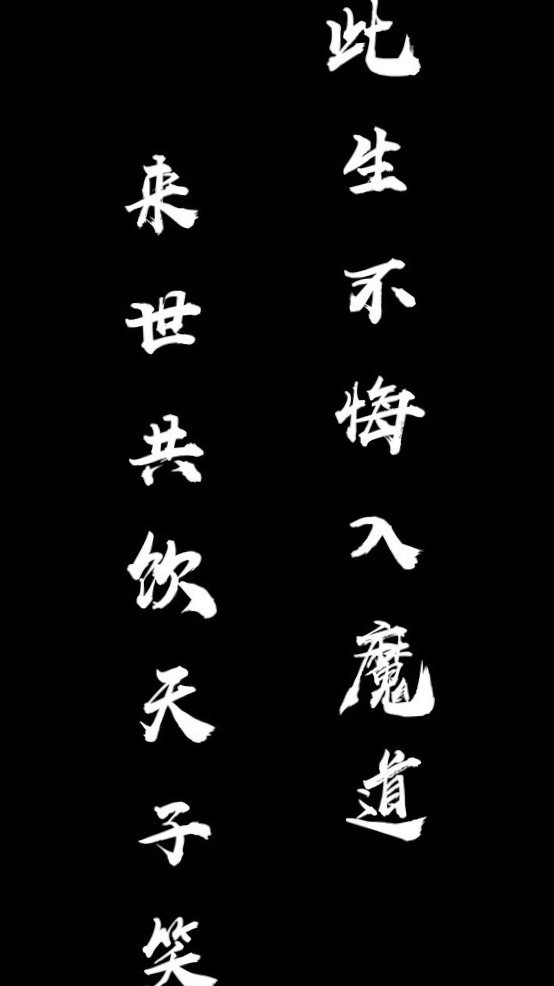 此生不悔入魔道
来世共饮天子笑